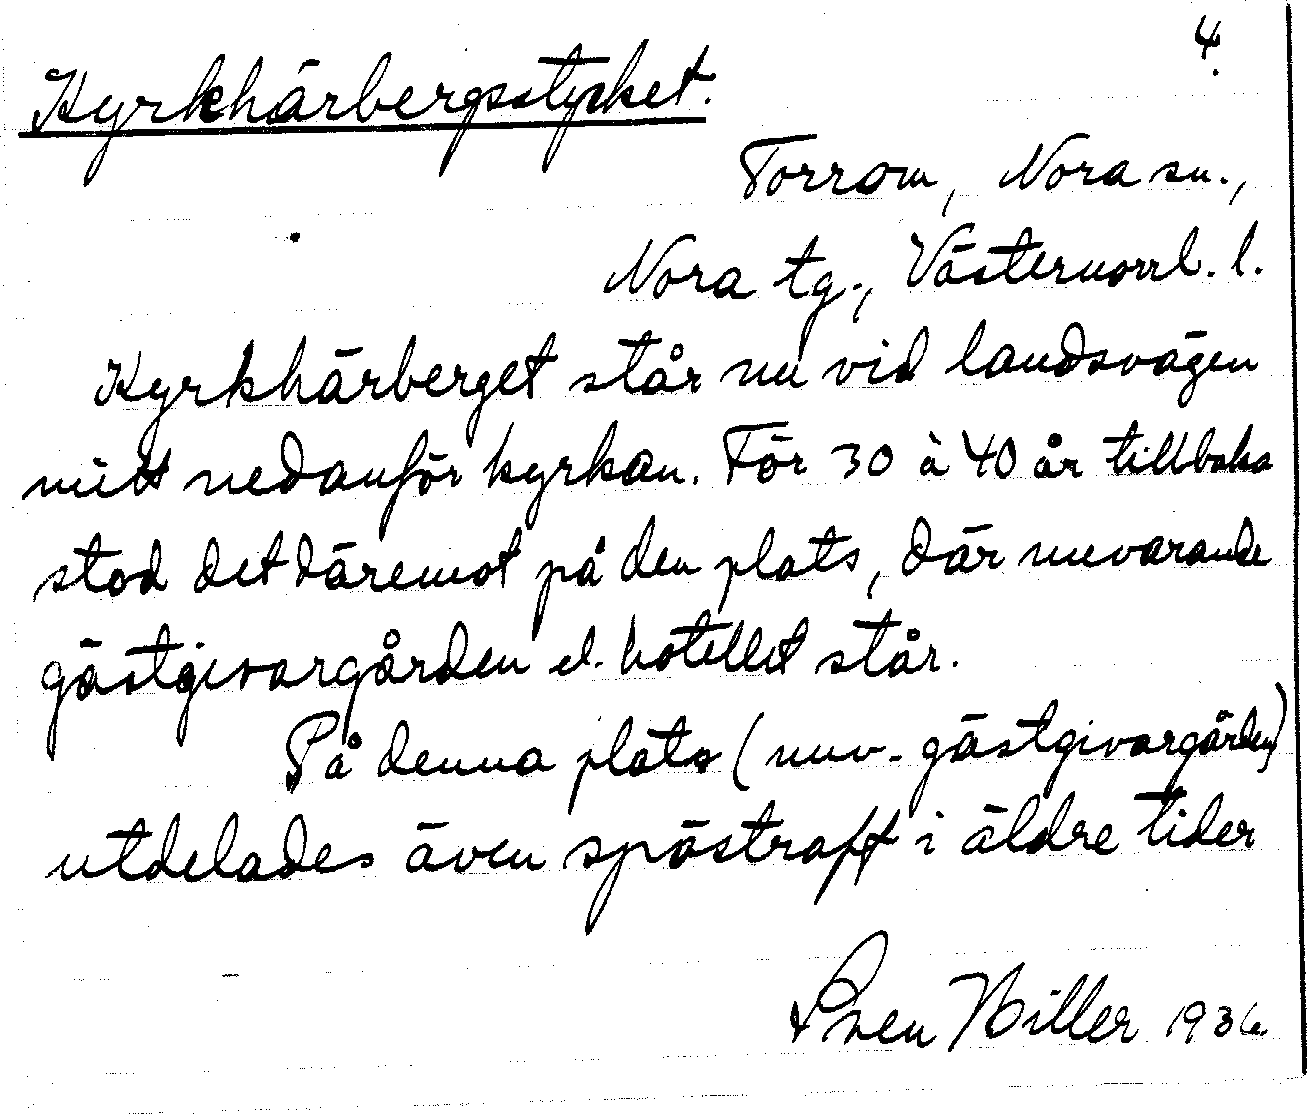 4.
Kyrkhärbergsstycket.
Torrom, Nora sn.,
Nora tg., Västernorrl. l.
Kyrkhärberget står nu vid landsvägen
mitt nedanför kyrkan. För 30 à 40 år tillbaka
stod det däremot på den plats, där nuvarande
gästgivargården el. hotellet står.
På denna plats (nuv. gästgivargården)
utdelades även spöstraff i äldre tider
Sven Hiller 1936